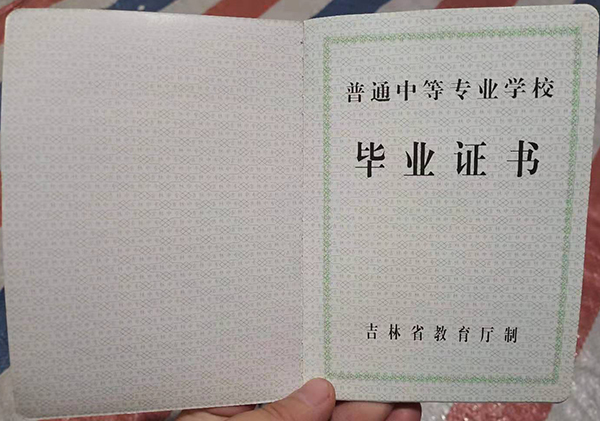 普通中等专业学校
毕业证书
吉林省教育厅制